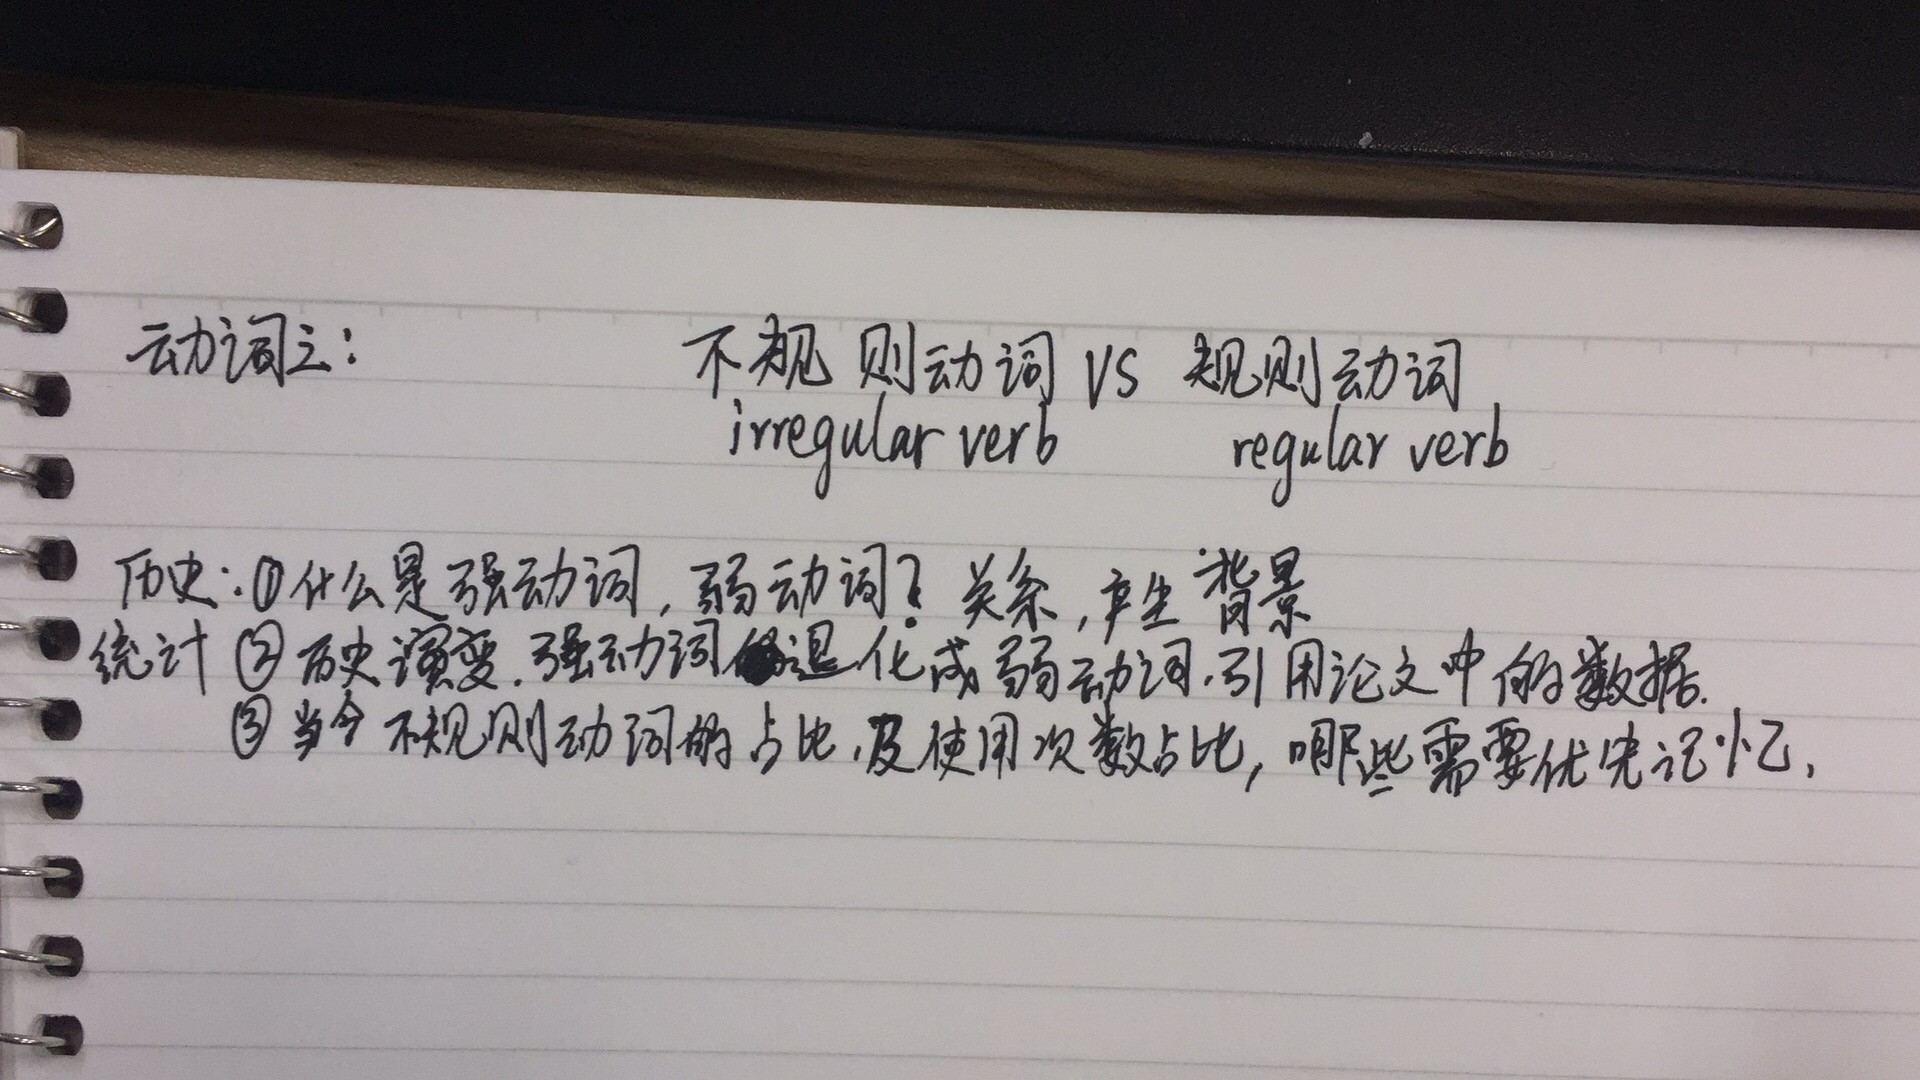 动词之：
不规则动词 VS 规则动词
irregular verb regular verb
历史：①什么是强动词，弱动词？关系，产生背景
统计 ②历史演变.强动词退化成弱动词.引用论文中的数据.
③当今不规则动词的占比.及使用次数占比，哪些需要优先记忆.